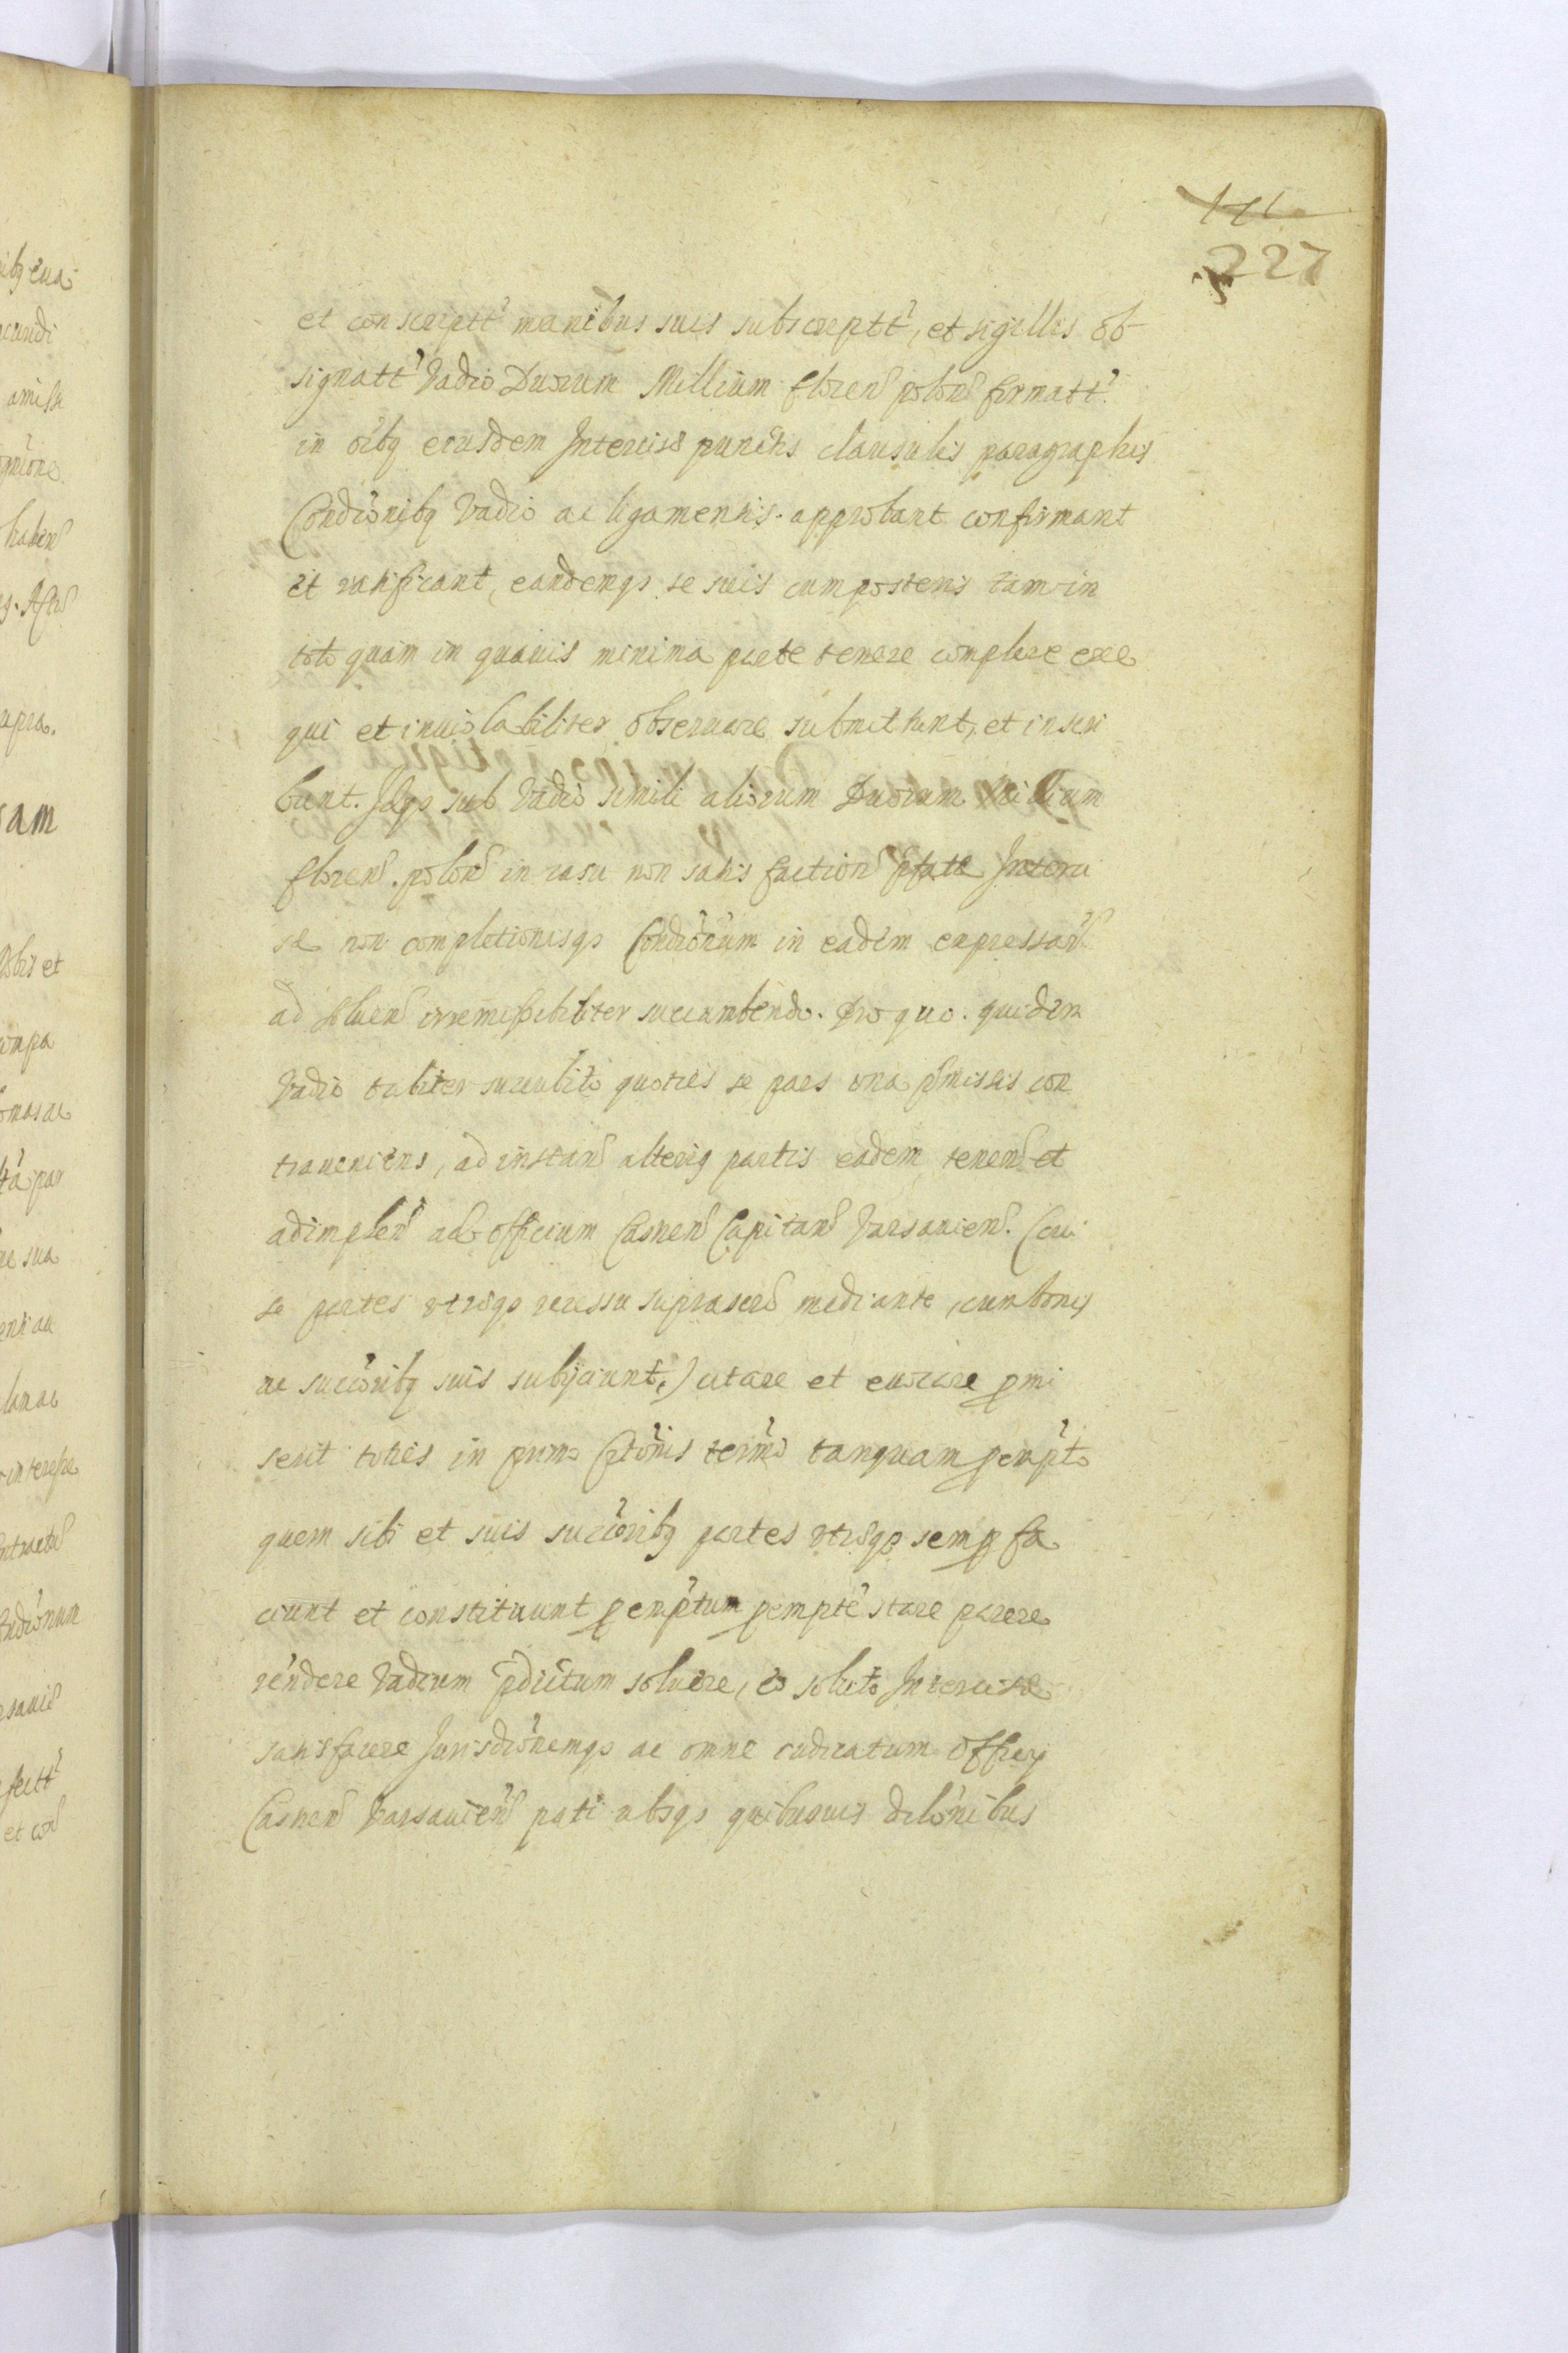 227
et conscriptt manibus suis subscriptt, et sigillis ob-
signatt Vadio Duorum Millium floren polon firmatt.
in oibq eiusdem Intercisæ punctis clausulis paragraphis
Condiõnibq Vadio ac ligamentis approbant confirmant
et ratificant, eandemqз se suis cum posteris tam in
toto quam in quauis minima parte tenere complere exe
qui et inuiolabiliter obseruare submittunt, et inscri
bunt. Idqз sub Vadio simili aliorum Duorum Millium
floren. polon in casu non satis faction pfate Interci
sæ non completionisqз Condiõnum in eadem expressar
ad soluen irremissibiliter succumbendo. Pro quo quidem
Vadio taliter succubito quoties se pars una pmissis con
traueniens, ad instan alteriq partis eadem tenen et
adimplen ad officium Casnen Capitan Varsauien. (cui
se partes utrasqз recessu suprascro mediante, cum bonis
ac succõribq suis subijciunt,) citare et euocare pmi
serit toties in primo Cõtonis termo tanquam pempto
quem sibi et suis succõribq partes utrasqз semp fa
ciunt et constituunt pemptum pempte stare parere
rendere Vadium pdictum soluere, eo soluto Intercisæ
satisfacere Jurisdiõnemqз ac omne iudicatum Officij
Casnen Varsauien pati absqз quibusuis dilõnibus
ibq eua
amissa
haben
upra.
sam
Nobis et
par
sua
lanae
interesse
ntracta
ndiõnum
et con